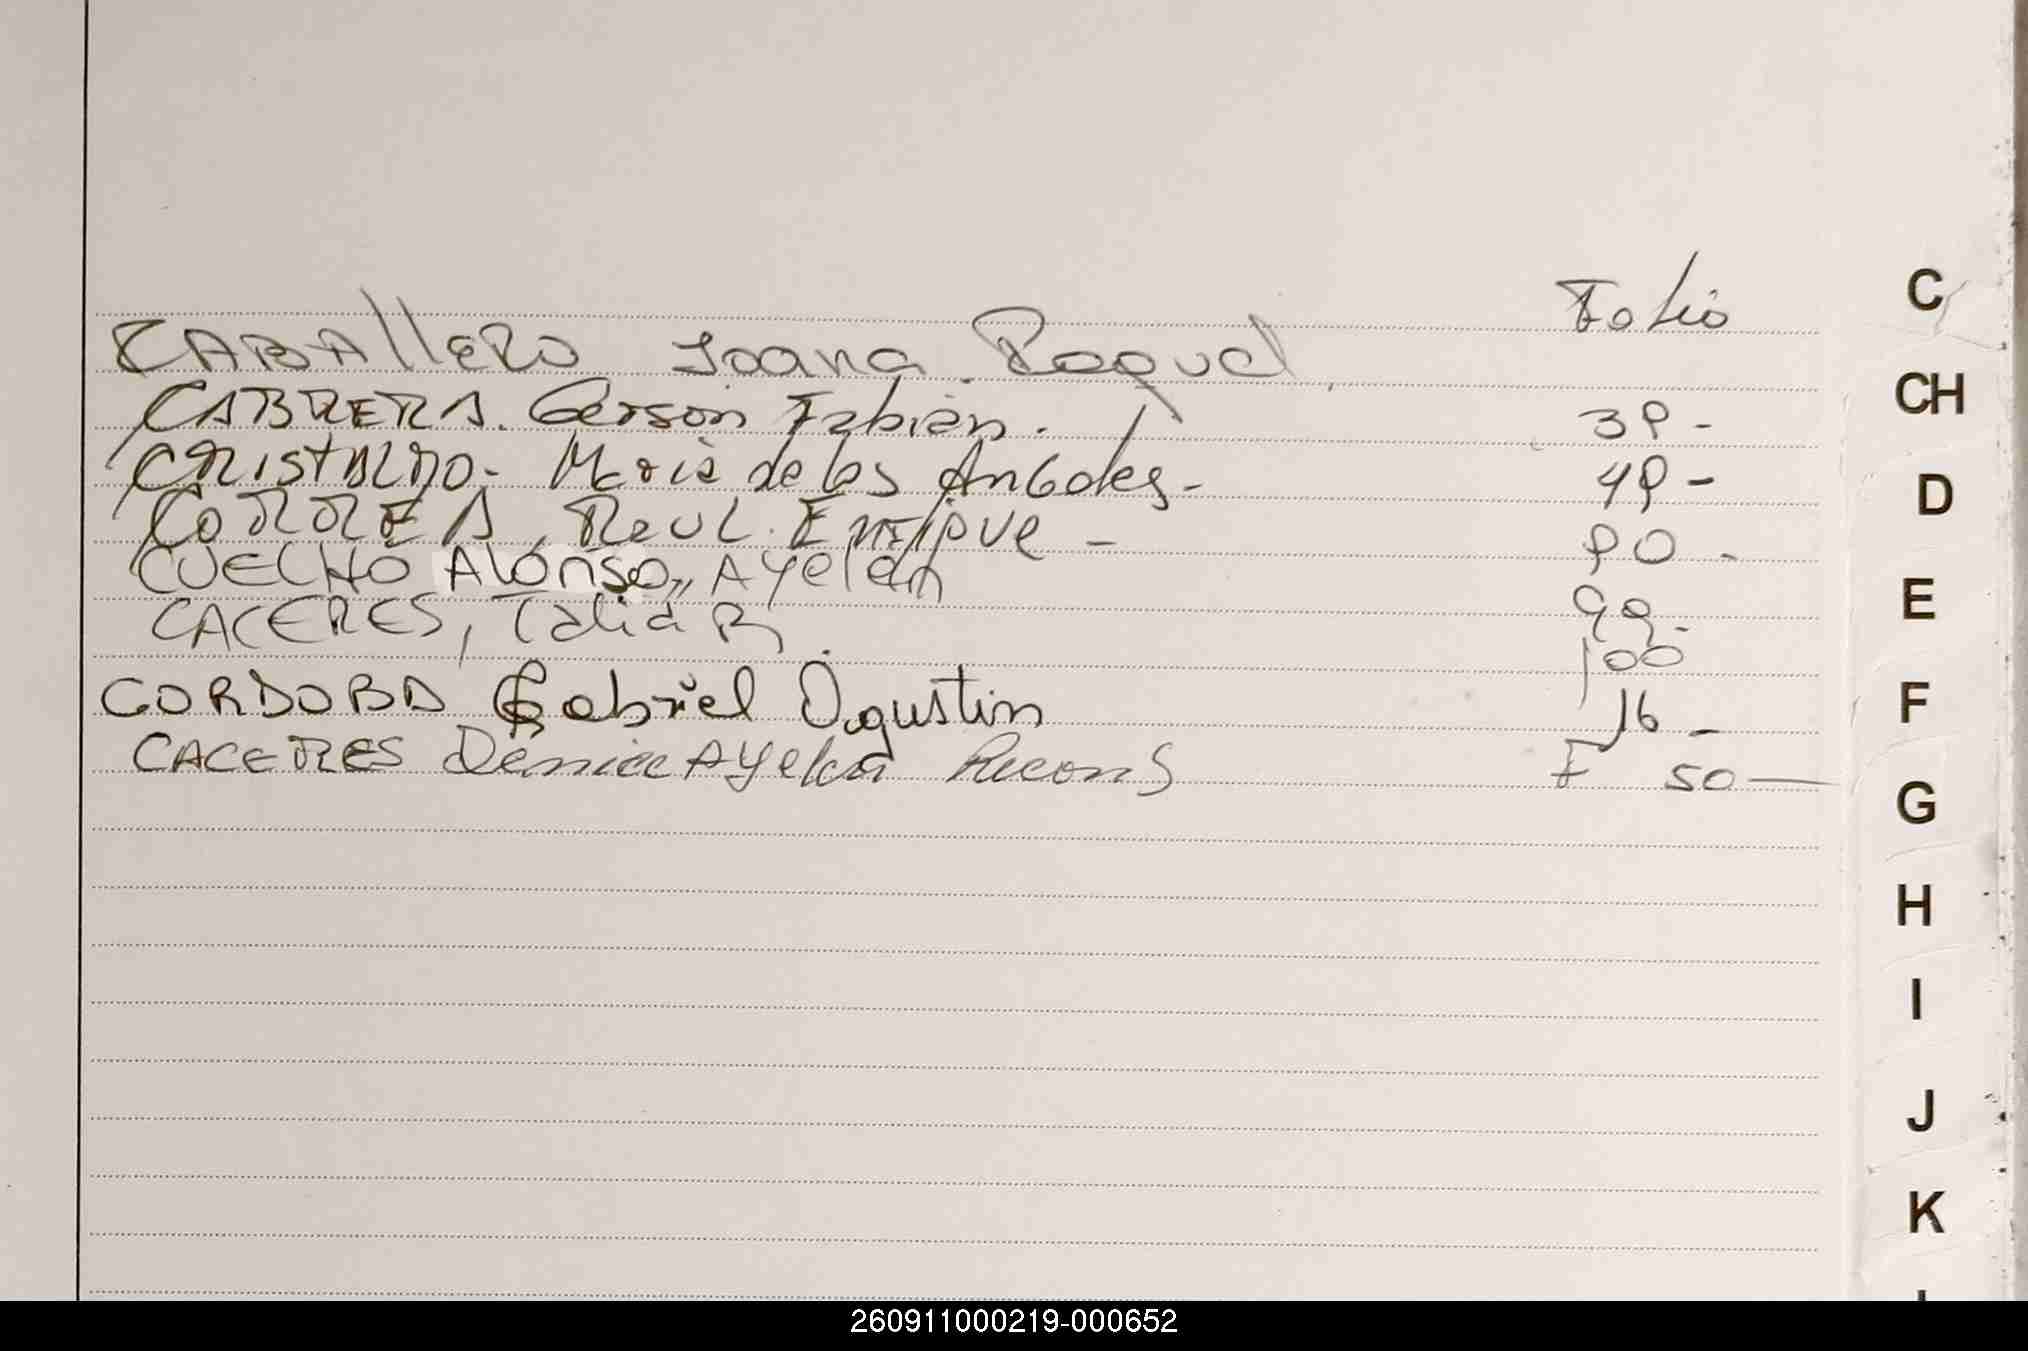 Folio
CABAllERO Ioana Raquel
CABRERA. Gerson Fabián. 38 -
CRISTALDO - Maria de los Angeles - 48 -
CORREA, Raul Enrique - 80 -
CUELHO Alonso,, Ayelen 99 -
CACERES, Talia R 100
CORDOBA Gabriel Agustin 16 -
CACERES Denice Ayelen F 50 —
C
CH
D
E
F
G
H
I
J
K
260911000219-000652